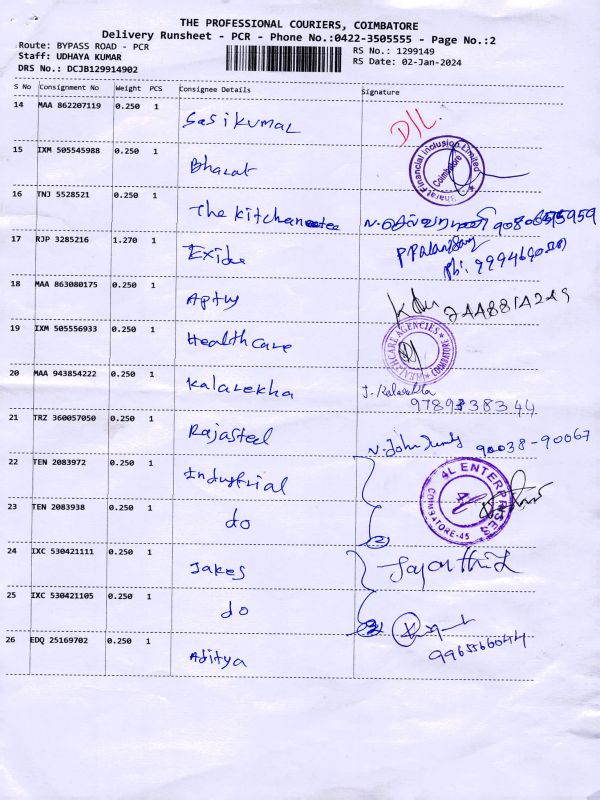 THE PROFESSIONAL COURIERS, COIMBATORE
Delivery Runsheet - PCR - Phone No.:0422-3505555 - Page No.:2
Route: BYPASS ROAD - PCR
RS No.: 1299149
Staff: UDHAYA KUMAR
RS Date: 02-Jan-2024
DRS No.: DCJB129914902
S No Consignment No Weight PCS Consignee Details Signature
14 MAA 862207119 0.250 1 Sasikumar D/L
15 IXM 505545988 0.250 1 Bharat
Bharat Financial Inclusion Limited
Coimbatore
16 TNJ 5528521 0.250 1 The Kitchan
17 RJP 3285216 1.270 1 Exide
Ph:
18 MAA 863080175 0.250 1 Aptus
19 IXM 505556933 0.250 1 Healthcare
HEALTHCARE AGENCIES
COIMBATORE
20 MAA 943854222 0.250 1 Kalarekha J. Kalarekha
21 TRZ 360057050 0.250 1 Rajasteel 90038-90067
22 TEN 2083972 0.250 1 Industrial
4L ENTERPRISES
COIMBATORE-45
23 TEN 2083938 0.250 1 do
24 IXC 530421111 0.250 1 Jakes
25 IXC 530421105 0.250 1 do
26 EDQ 25169702 0.250 1 Aditya